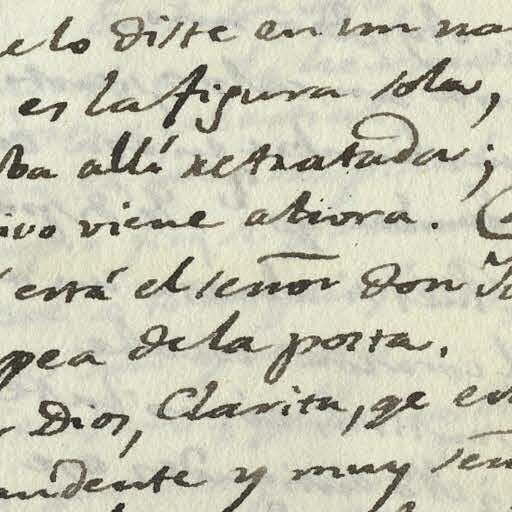 elo diste en un na
es la figura sola,
ba allá retratada;
ivo viene ahora. (
está el señor don
pea de la posta.
Dios, Clarita, qe es
andente y muy señ